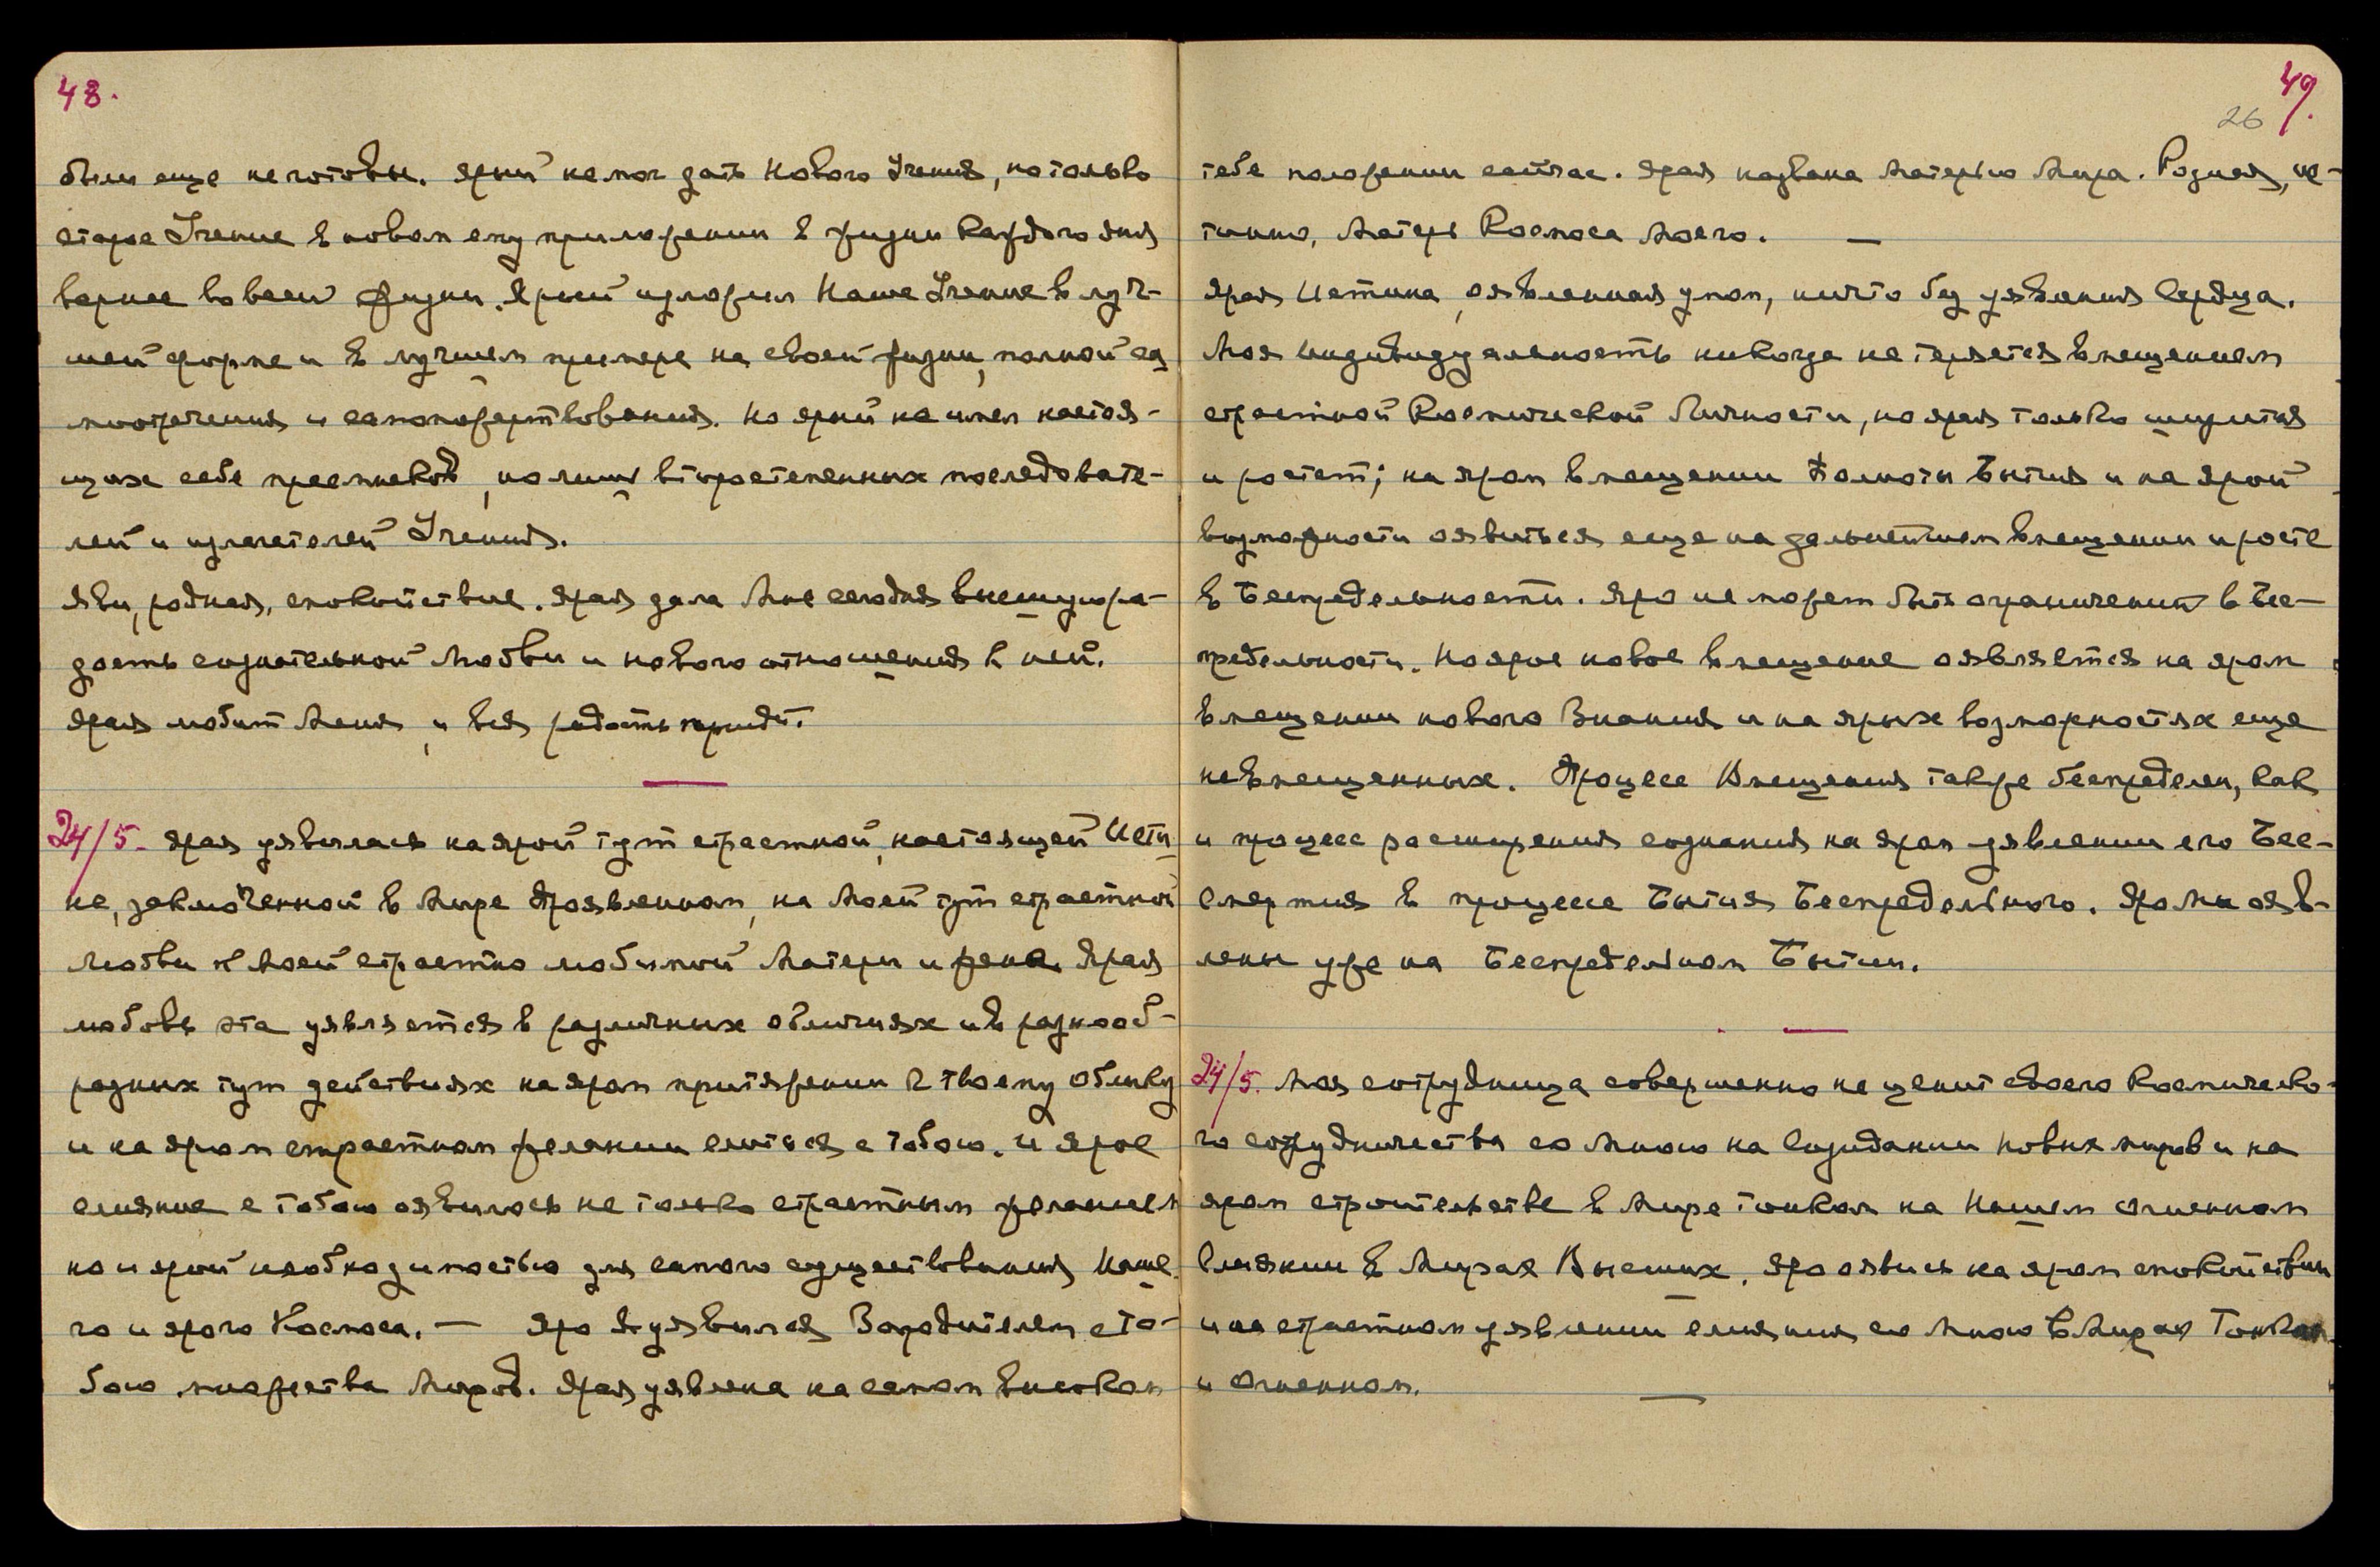 48.
были еще не готовы. Ярый не мог дать Нового Учения, но только
старое Учение в новом ему приложении в жизни каждого дня
вернее во всей жизни. Ярый изложил Наше Учение в луч-
шей форме и в лучшем примере на своей жизни, полной са
моотречения и самопожертвования. Но ярый не имел настоя-
щих себе преемников, но лишь второстепенных последовате-
лей и излагателей Учения.
Яви, родная, спокойствие. Ярая дала Мне сегодня высшую ра-
дость сознательной Любви и нового отношения к ней.
Ярая любит Меня, и вся радость придет.
24/5- Ярая уявилась на ярой тут страстной, настоящей Исти
не, заключенной в Мире Проявленном, на Моей тут страстной
Любви к Моей страстно любимой Матери и жене. Ярая
любовь эта уявляется в различных обличиях и в разнооб-
разных тут действиях на яром притяжении к твоему облику
и на яром страстном желании слиться с тобою. И ярое
слияние с тобою оявилось не только страстным желанием
но и ярой необходимостью для самого существования Наше
го и ярого Космоса. — Яро Я уявился Зародителем с то-
бою множества Миров. Ярая уявлена на самом высоком
49.
26
тебе положении сейчас. Ярая названа Матерью Мира. Родная, ис-
тинно, Матерь Космоса Моего. —
Ярая Истина, оявленная умом, ничто без уявления Сердца.
Моя Индивидуальность никогда не теряется вмещением
страстной Космической Личности, но ярая только ширится
и растет; на яром вмещении Полноты Бытия и на ярой
возможности оявиться еще на дальнейшем вмещении и росте
в Беспредельности. Яро не может быть ограничений в Бес-
предельности. Но ярое новое вмещение оявляется на яром
вмещении нового Знания и на ярых возможностях еще
невмещенных. Процесс Вмещения также беспределен, как
и процесс расширения сознания на яром уявлении его Бес-
смертия в процессе Бытия Беспредельного. Яро Мы ояв-
лены уже на Беспредельном Бытии.
24/5. Моя сотрудница совершенно не ценит своего Космическо-
го сотрудничества со Мною на Созидании Новых миров и на
яром строительстве в Мире Тонком на Нашем Огненном
Слиянии в Мирах Высших. Яро оявись на яром спокойствии
и на страстном уявлении слияния со Мною в Мирах Тонком
и Огненном. —